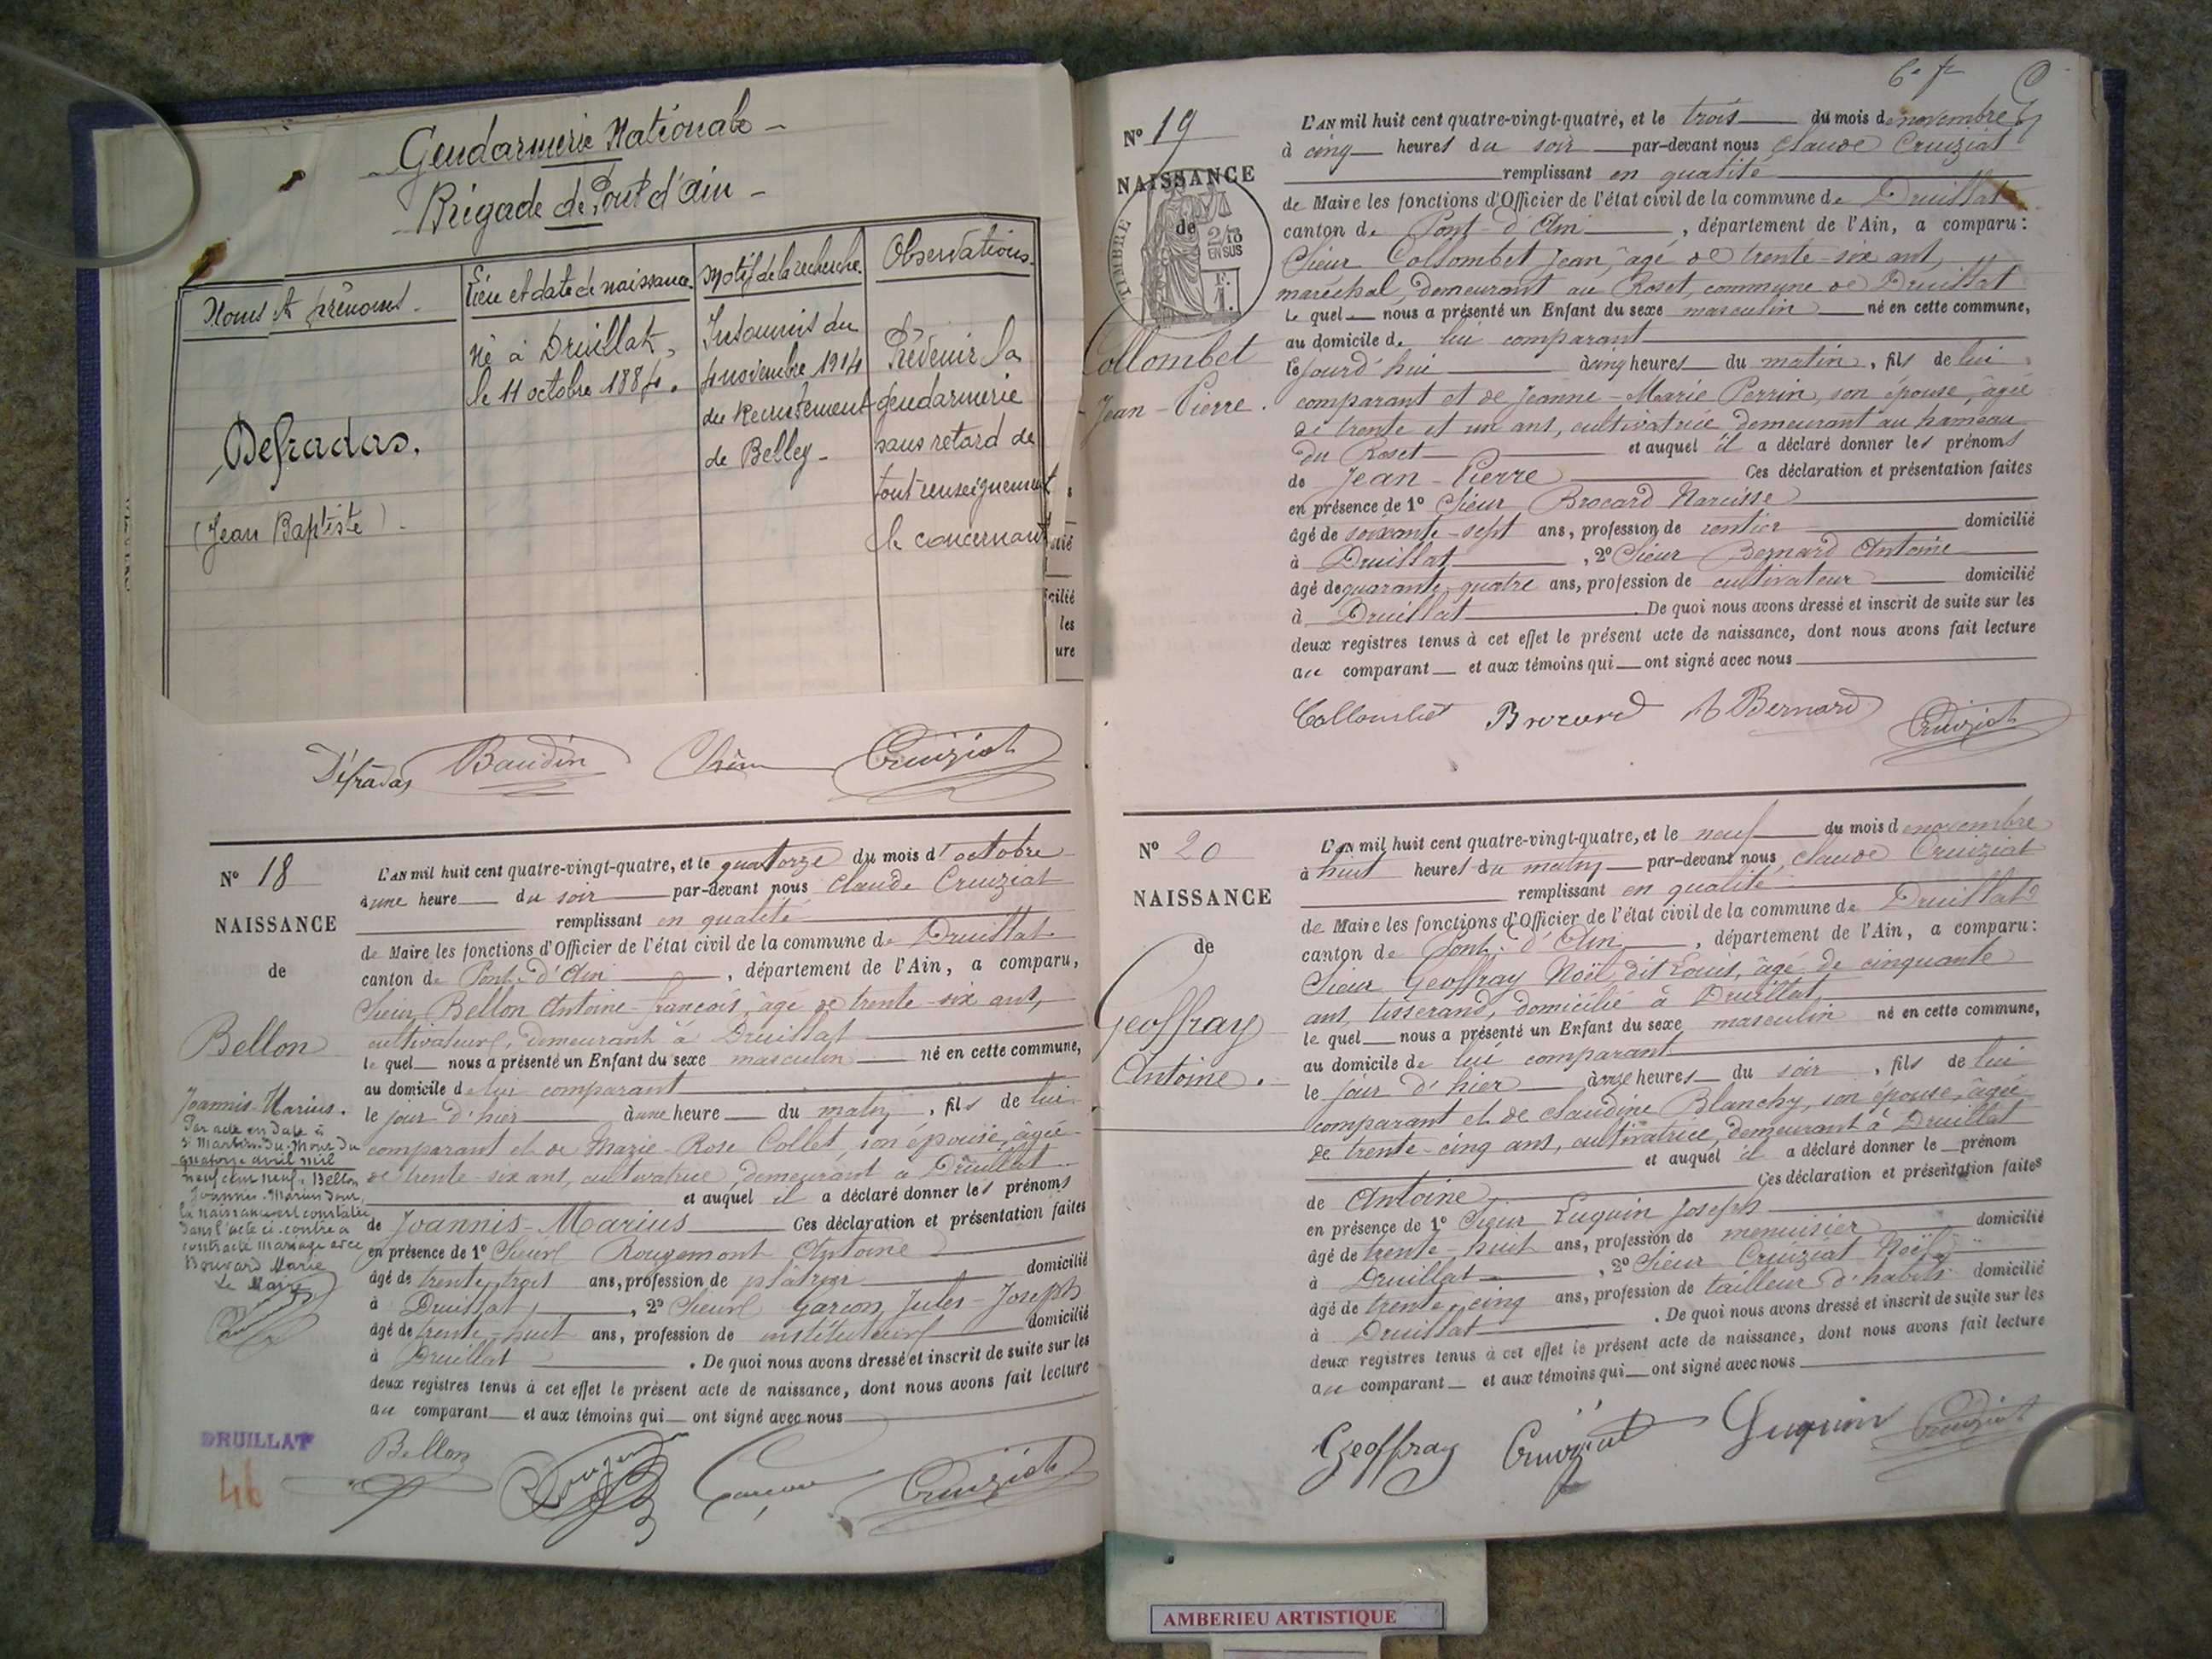 Gendarmerie Nationale
Brigade de Pont d'ain
Noms et prénoms.
Lieu et date de naissance.
Motif de la recherche.
Observations.
Defradas.
(Jean Baptiste).
né à Druillat,
le 11 octobre 1884.
Insoumis du
4 novembre 1914
du Recrutement
de Belley
Prévenir la
gendarmerie
sans retard de
tout renseignement
le concernant
cilié
les
ure
Défradas Baudin Cruiziat
N° 18
NAISSANCE
de
Bellon
Joannis-Marius.
Par acte en date à
St Martin-du-Mont du
quatorze avril mil
neuf cent neuf, Bellon
Joannis-Marius dont
la naissance est constatée
dans l'acte ci-contre a
contracté mariage avec
Bouvard Marie
Le Maire
L'AN mil huit cent quatre-vingt-quatre, et le quatorze du mois d'octobre
à une heure du soir par-devant nous Claude Cruiziat
remplissant en qualité
de Maire les fonctions d'Officier de l'état civil de la commune de Druillat
canton de Pont-d'Ain, département de l'Ain, a comparu,
Sieur Bellon Antoine-françois, âgé de trente-six ans,
cultivateur, demeurant à Druillat
le quel nous a présenté un Enfant du sexe masculin né en cette commune,
au domicile de lui comparant
le jour d'hier à une heure du matin, fils de lui
comparant et de Marie-Rose Collet, son épouse, âgée
de trente-six ans, cultivatrice, demeurant à Druillat
et auquel il a déclaré donner les prénoms
de Joannis-Marius Ces déclaration et présentation faites
en présence de 1° Sieur Rougemont Antoine
âgé de trente-trois ans, profession de plâtrier domicilié
à Druillat, 2° Sieur Garçon Jules-Joseph
âgé de trente-huit ans, profession de instituteur domicilié
à Druillat. De quoi nous avons dressé et inscrit de suite sur les
deux registres tenus à cet effet le présent acte de naissance, dont nous avons fait lecture
au comparant et aux témoins qui ont signé avec nous
DRUILLAT
46
Bellon Cruiziat
6e f
N° 19
NAISSANCE
de
TIMBRE
2/10
EN SUS
F.
1.
Collombet
Jean-Pierre.
L'AN mil huit cent quatre-vingt-quatre, et le trois du mois de novembre
à cinq heures du soir par-devant nous Claude Cruiziat
remplissant en qualité
de Maire les fonctions d'Officier de l'état civil de la commune de Druillat
canton de Pont-d'Ain, département de l'Ain, a comparu:
Sieur Collombet Jean, âgé de trente-six ans,
maréchal, demeurant au Roset, commune de Druillat
le quel nous a présenté un Enfant du sexe masculin né en cette commune,
au domicile de lui comparant
ce jourd'hui à cinq heures du matin, fils de lui
comparant et de Jeanne-Marie Perrin, son épouse, âgée
de trente et un ans, cultivatrice, demeurant au hameau
du Roset et auquel il a déclaré donner les prénoms
de Jean-Pierre Ces déclaration et présentation faites
en présence de 1° Sieur Brocard Narcisse
âgé de soixante-sept ans, profession de rentier domicilié
à Druillat, 2° Sieur Bernard Antoine
âgé de quarante-quatre ans, profession de cultivateur domicilié
à Druillat. De quoi nous avons dressé et inscrit de suite sur les
deux registres tenus à cet effet le présent acte de naissance, dont nous avons fait lecture
au comparant et aux témoins qui ont signé avec nous
Collombet Brocard A Bernard Cruiziat
N° 20
NAISSANCE
de
Geoffray
Antoine.
L'AN mil huit cent quatre-vingt-quatre, et le neuf du mois de novembre
à huit heures du matin par-devant nous Claude Cruiziat
remplissant en qualité
de Maire les fonctions d'Officier de l'état civil de la commune de Druillat
canton de Pont-d'Ain, département de l'Ain, a comparu:
Sieur Geoffray Noël, dit Louis, âgé de cinquante
ans, tisserand, domicilié à Druillat,
le quel nous a présenté un Enfant du sexe masculin né en cette commune,
au domicile de lui comparant
le jour d'hier à onze heures du soir, fils de lui
comparant et de Claudine Blanchy, son épouse, âgée
de trente-cinq ans, cultivatrice, demeurant à Druillat
et auquel il a déclaré donner le prénom
de Antoine Ces déclaration et présentation faites
en présence de 1° Sieur Luquin Joseph
âgé de trente-huit ans, profession de menuisier domicilié
à Druillat, 2° Sieur Cruiziat Noël
âgé de trente-cinq ans, profession de tailleur d'habits domicilié
à Druillat. De quoi nous avons dressé et inscrit de suite sur les
deux registres tenus à cet effet le présent acte de naissance, dont nous avons fait lecture
au comparant et aux témoins qui ont signé avec nous
Geoffray Cruiziat Luquin Cruiziat
AMBERIEU ARTISTIQUE